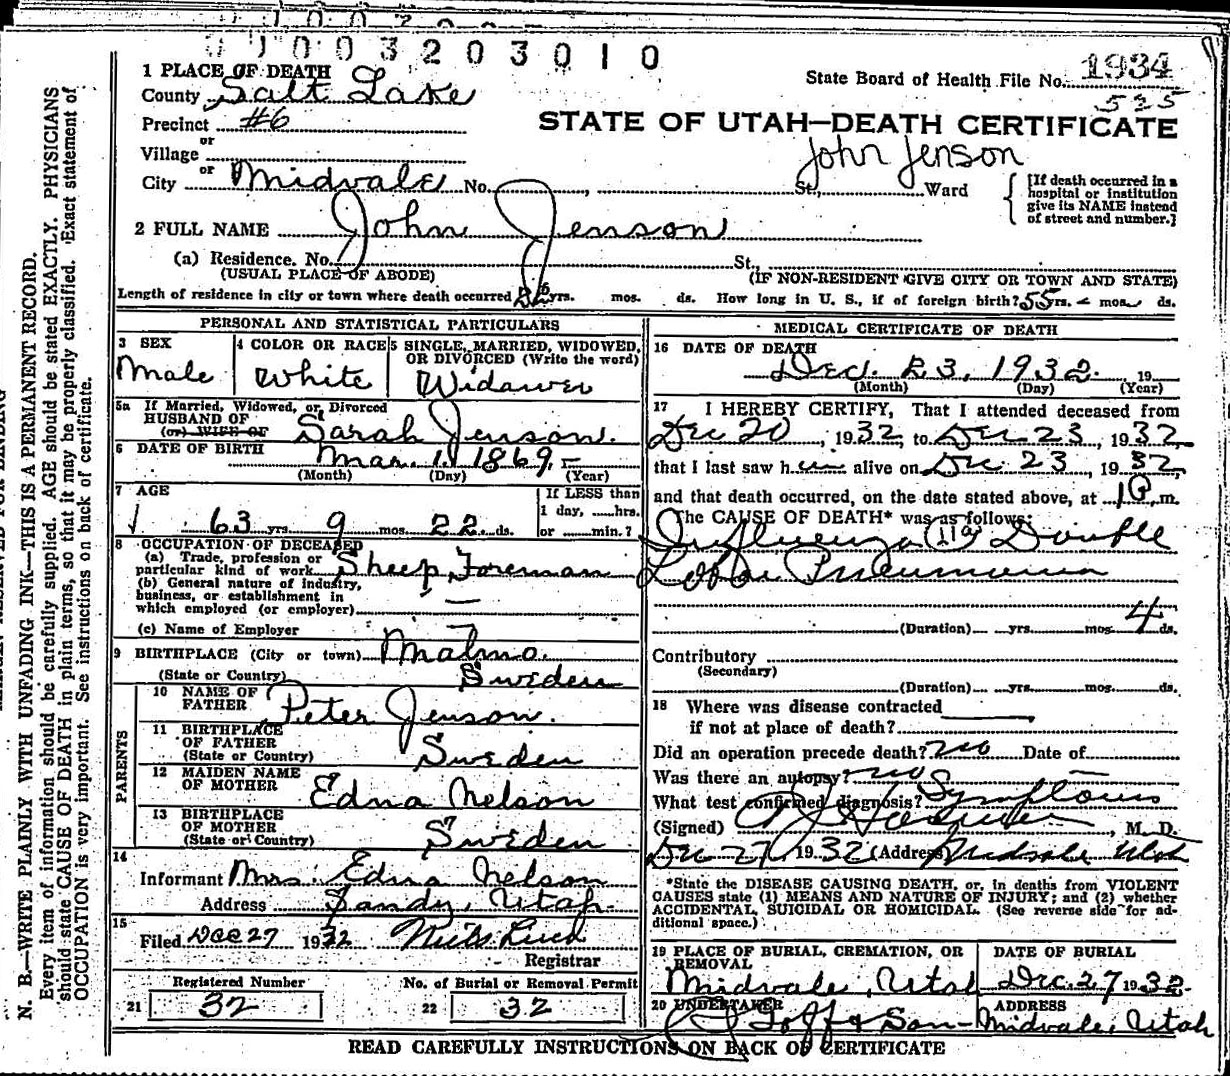 01003203010
1 PLACE OF DEATH
County Salt Lake
State Board of Health File No. 1934
525
Precinct #6
STATE OF UTAH—DEATH CERTIFICATE
or
Village
John Jenson
or
City Midvale No. St., Ward
[If death occurred in a
hospital or institution
give its NAME instead
of street and number.]
2 FULL NAME John Jenson
(a) Residence. No. St.,
(USUAL PLACE OF ABODE) (IF NON-RESIDENT GIVE CITY OR TOWN AND STATE)
Length of residence in city or town where death occurred yrs. mos. ds. How long in U. S., if of foreign birth? 55 yrs. - mos. ds.
PERSONAL AND STATISTICAL PARTICULARS
3 SEX
Male
4 COLOR OR RACE
White
5 SINGLE, MARRIED, WIDOWED,
OR DIVORCED (Write the word)
Widower
5a If Married, Widowed, or Divorced
HUSBAND OF
(or) WIFE OF Sarah Jenson.
6 DATE OF BIRTH Mar. 1. 1869.
(Month) (Day) (Year)
7 AGE
63 yrs. 9 mos. 22 ds.
If LESS than
1 day, hrs.
or min.?
8 OCCUPATION OF DECEASED
(a) Trade, profession or
particular kind of work Sheep Foreman
(b) General nature of industry,
business, or establishment in
which employed (or employer)
(c) Name of Employer
9 BIRTHPLACE (City or town) Malmo.
(State or Country) Sweden
PARENTS
10 NAME OF
FATHER Peter Jenson.
11 BIRTHPLACE
OF FATHER
(State or Country) Sweden
12 MAIDEN NAME
OF MOTHER Edna Nelson
13 BIRTHPLACE
OF MOTHER
(State or Country) Sweden
14
Informant Mrs. Edna Nelson
Address Sandy, Utah.
15
Filed Dec 27 1932
Registrar
Registered Number
21 32
No. of Burial or Removal Permit
22 32
MEDICAL CERTIFICATE OF DEATH
16 DATE OF DEATH
Dec. 23, 1932. 19
(Month) (Day) (Year)
17 I HEREBY CERTIFY, That I attended deceased from
Dec 20, 1932, to Dec 23, 1932,
that I last saw him alive on Dec. 23, 1932,
and that death occurred, on the date stated above, at 1 P. m.
The CAUSE OF DEATH* was as follows:
Influenza 11a Double
Lobar Pneumonia
(Duration) yrs. mos. 4 ds.
Contributory
(Secondary)
(Duration) yrs. mos. ds.
18 Where was disease contracted
if not at place of death?
Did an operation precede death? no Date of
Was there an autopsy? no
What test confirmed diagnosis? Symptoms
(Signed) , M. D.
Dec 27, 1932 (Address) Midvale Utah
*State the DISEASE CAUSING DEATH, or, in deaths from VIOLENT
CAUSES state (1) MEANS AND NATURE OF INJURY; and (2) whether
ACCIDENTAL, SUICIDAL OR HOMICIDAL. (See reverse side for ad-
ditional space.)
19 PLACE OF BURIAL, CREMATION, OR
REMOVAL
Midvale, Utah
DATE OF BURIAL
Dec. 27 1932.
20 UNDERTAKER
Goff & Son
ADDRESS
Midvale, Utah
READ CAREFULLY INSTRUCTIONS ON BACK OF CERTIFICATE
N. B.—WRITE PLAINLY WITH UNFADING INK—THIS IS A PERMANENT RECORD.
Every item of information should be carefully supplied. AGE should be stated EXACTLY. PHYSICIANS
should state CAUSE OF DEATH in plain terms, so that it may be properly classified. Exact statement of
OCCUPATION is very important. See instructions on back of certificate.